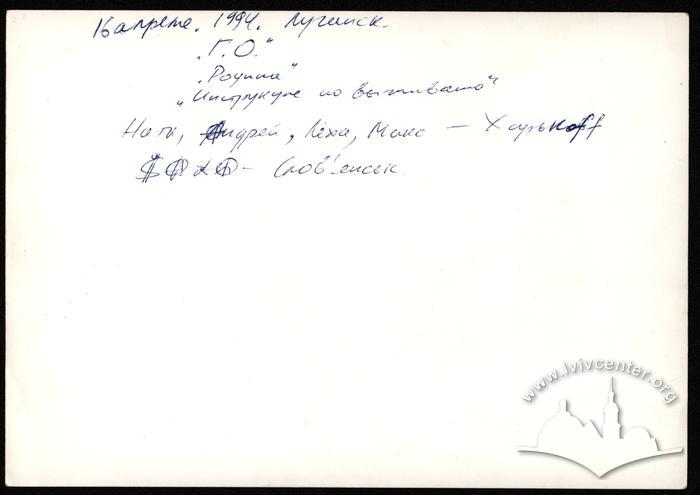 16 апреля. 1994. Луганск.
„Г.О.“
„Родина“
„Инструкция по выживанию“
Натк, Андрей, Лёха, Макс — Харькоff
— Слов'янськ.
www.lvivcenter.org